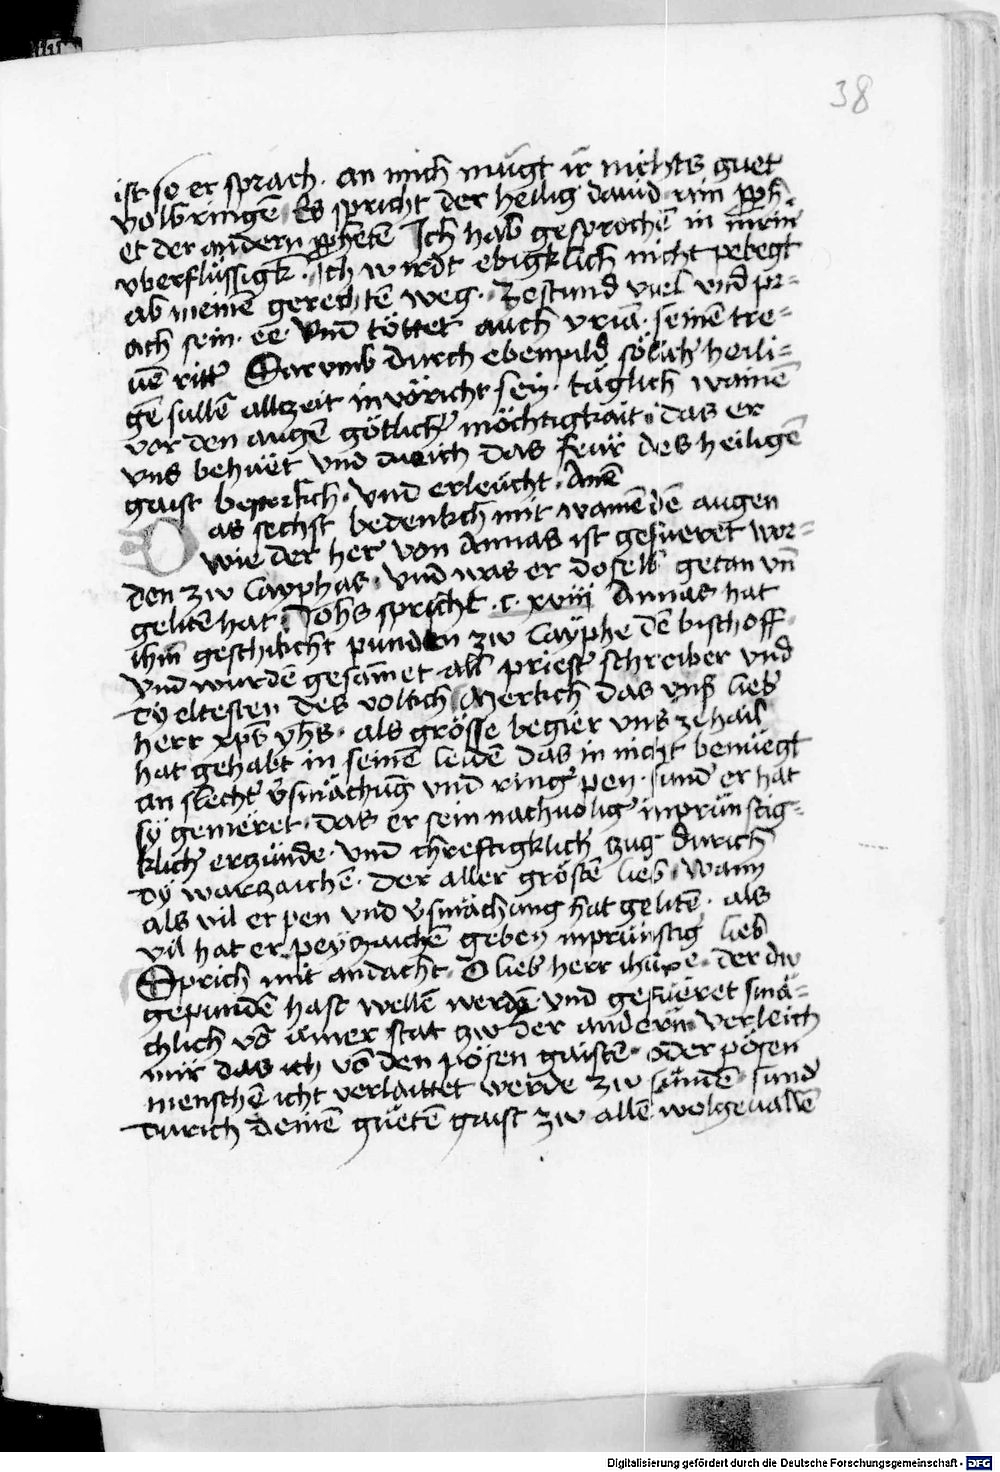 38
ist so er sprach · an mich mugt ir nichts guet
volbringen̄ Es spricht der heilig dauid · ain pph̄
et der andern pphetē Ich hab gesprochē in meinē
vberflüssigk̄ · Ich wirdt ebigklich nicht pebegt
ab meinē gerechtē weg · Zestund viel vnd pr=
ach sein · ee Vnd töttet auch vria · seinē tre=
uē ritt͛ Darvmb durch ebenpild sölich͛ heili=
gē sullē allzeit in vöricht sein · täglich wainē
vor den augē götlich͛ mächtigkait · das er
vns behuet vnd durich das feur des heiligē
gaist beperkch · vnd erleucht · Amē
Das sechst bedenkch mit wainēdē augen
wie der her͛ von Annas ist gefueret wor=
den zw Cayphas · Vnd was er doselb getan vn̄
gelitē hat · Johs spricht · c · xviij Annas hat
ihm̄ geschikcht punden zw Cayphe dē bischoff
Vnd wurdē gesam̄et all priest͛ schreiber vnd
dÿ eltesten des volkch Merkch das vns͛ lieb͛
herr xps̄ yhs · als grösse begier vns zehail
hat gehabt in seinē leidē das in nicht benüegt
an slecht͛ v͛smächūg vnd ring͛ pen · sund͛ er hat
sÿ gemeret · das er sein nachuolig͛ inprünstig=
klich͛ erzünde · vnd chreftigklich͛ zug durich
dÿ warzaichē · der aller gröstē lieb · Wann
als vil er pen vnd v͛smächung hat gelitē · als
vil hat er peyzaichē geben inprünstig͛ lieb
Sprich mit andacht · O lieb͛ herr ihū xpe · der dw
gepundē hast wellē werdē · vnd gefueret smä=
chlich vō ainer stat zw der anderū · verleich
mir das ich vō den pösen gaistē · oder pösen
menschē icht verlaittet werde zw sündē · sund͛
durich deinē guetē gaist zw allē wolgeuallē
Digitalisierung gefördert durch die Deutsche Forschungsgemeinschaft - DFG